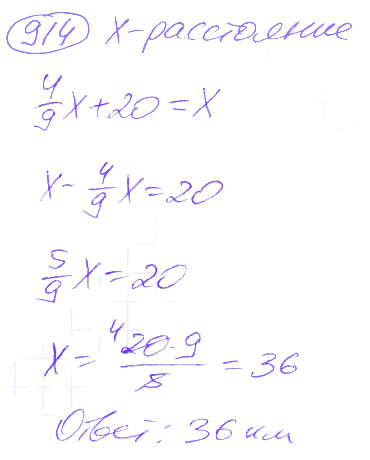 914 X - расстояние
4/9 X + 20 = X
X - 4/9 X = 20
5/9 X = 20
X = ⁴20·9/5 = 36
Ответ: 36 км